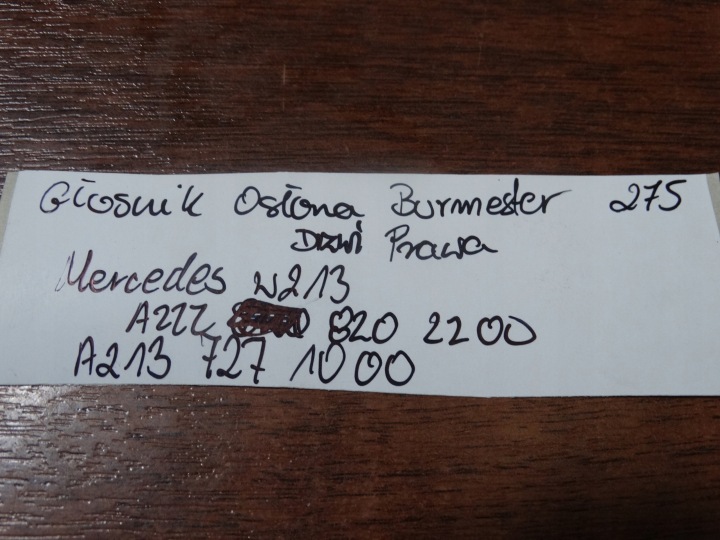 Głosnik Osłona Burmester 275
Drzwi Prawa
Mercedes W213
A222 820 2200
A213 727 1000